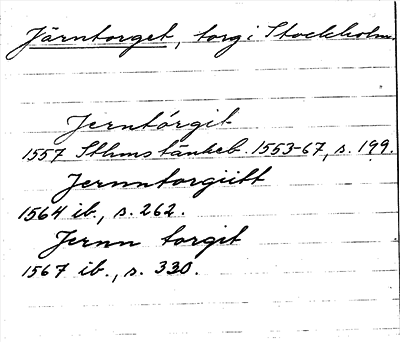 Järntorget, torg i Stockholm.
Jerntórgit
1557 Sthmstänkeb. 1553-67, s. 199.
Jernntorgiitt
1564 ib., s. 262.
Jernn torgit
1567 ib., s. 330.